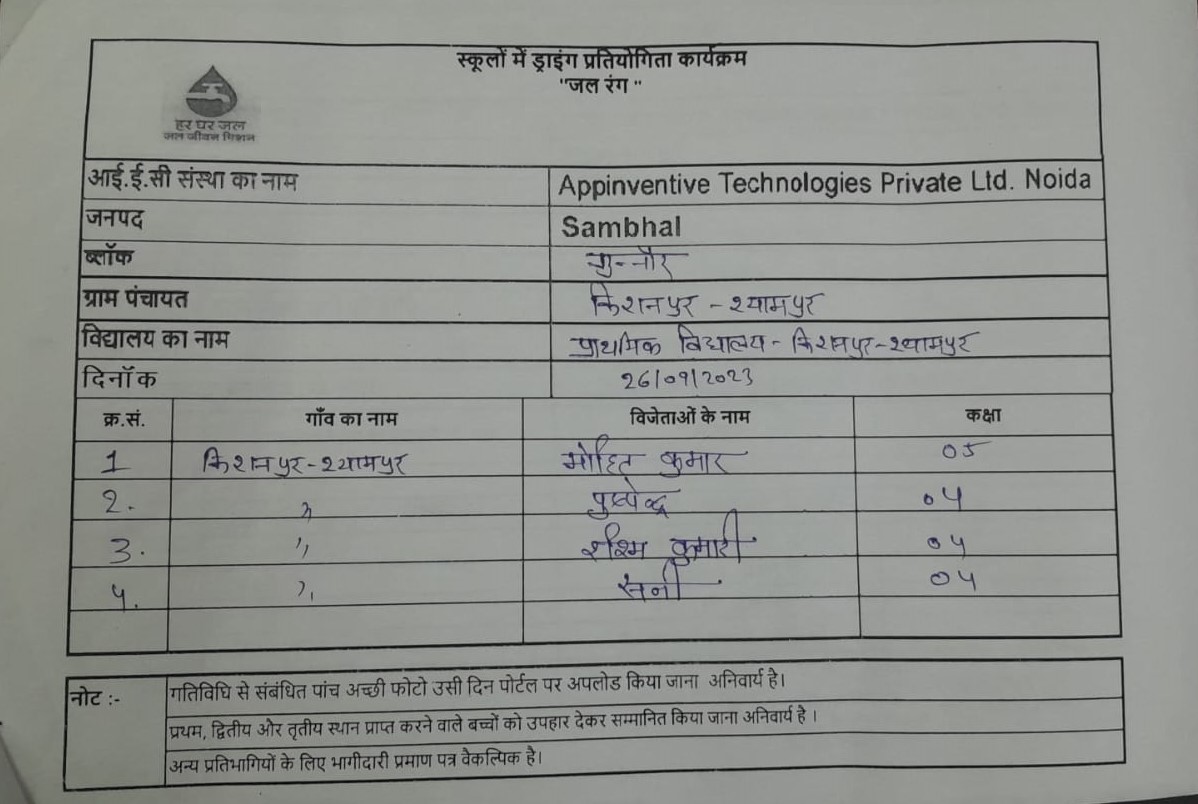 स्कूलों में ड्राइंग प्रतियोगिता कार्यक्रम
"जल रंग "
हर घर जल
जल जीवन मिशन
आई.ई.सी संस्था का नाम Appinventive Technologies Private Ltd. Noida
जनपद Sambhal
ब्लॉक गुन्नौर
ग्राम पंचायत किशनपुर - श्यामपुर
विद्यालय का नाम प्राथमिक विद्यालय - किशनपुर-श्यामपुर
दिनॉक 26/09/2023
क्र.सं. गाँव का नाम विजेताओं के नाम कक्षा
1 किशनपुर-श्यामपुर मोहित कुमार 05
2. ,, पुष्पेन्द्र 04
3. ,, कुमारी 04
4. ,, सनी 04
नोट :- गतिविधि से संबंधित पांच अच्छी फोटो उसी दिन पोर्टल पर अपलोड किया जाना अनिवार्य है।
प्रथम, द्वितीय और तृतीय स्थान प्राप्त करने वाले बच्चों को उपहार देकर सम्मानित किया जाना अनिवार्य है ।
अन्य प्रतिभागियों के लिए भागीदारी प्रमाण पत्र वैकल्पिक है।